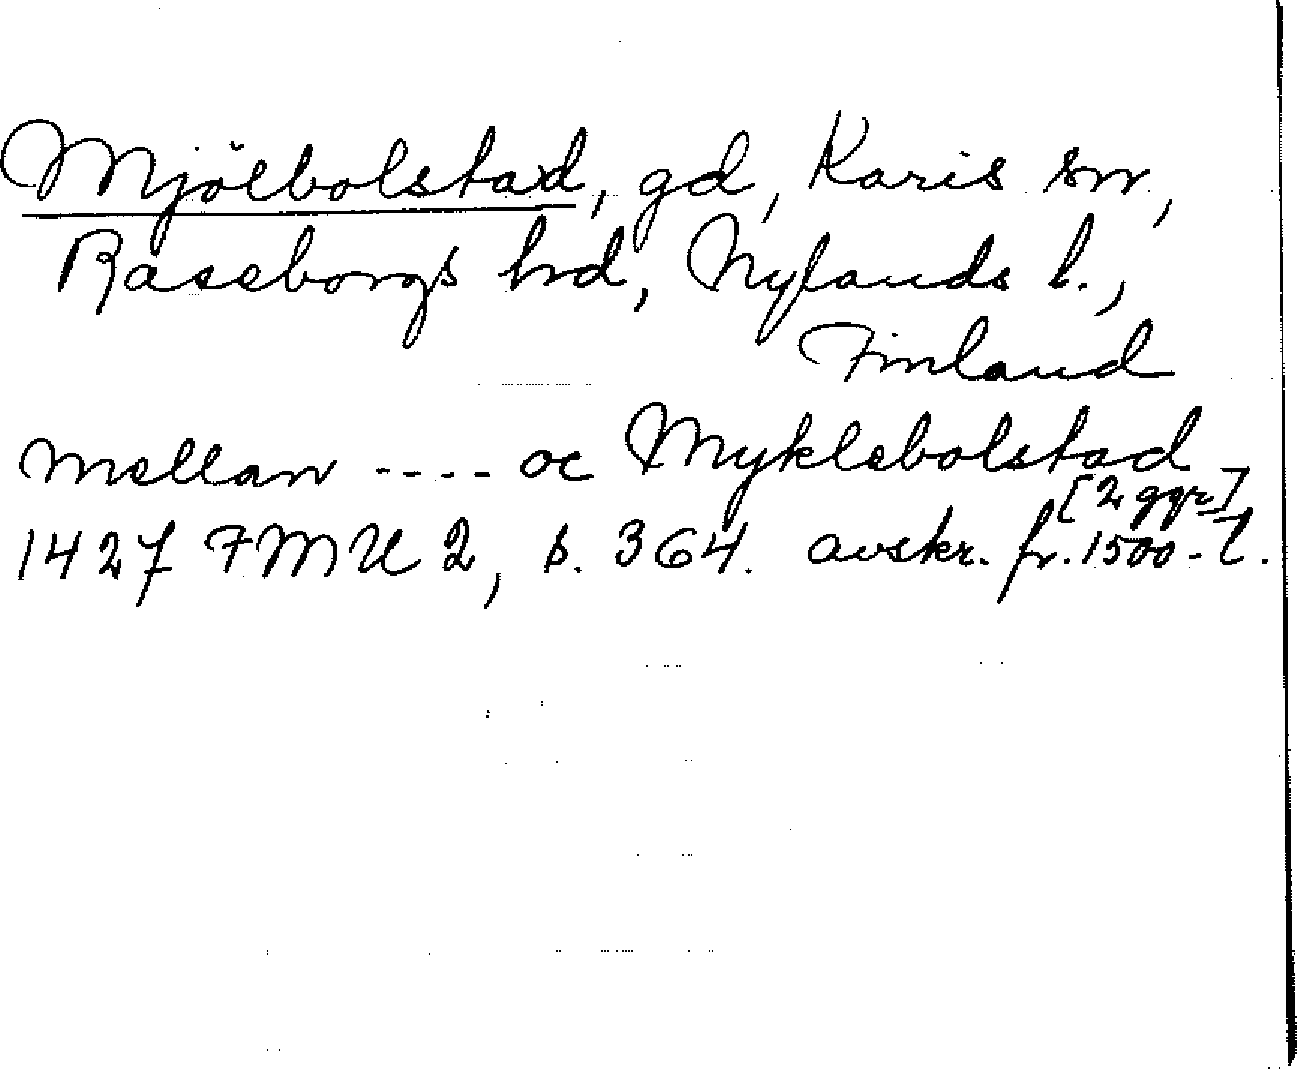 Mjölbolstad, gd, Karis sn,
Raseborgs hd, Nylands l.,
Finland
mellan ---- oc Myklebolstad
[2 ggr]
1427 FMU 2, s. 364. avskr. fr. 1500-t.